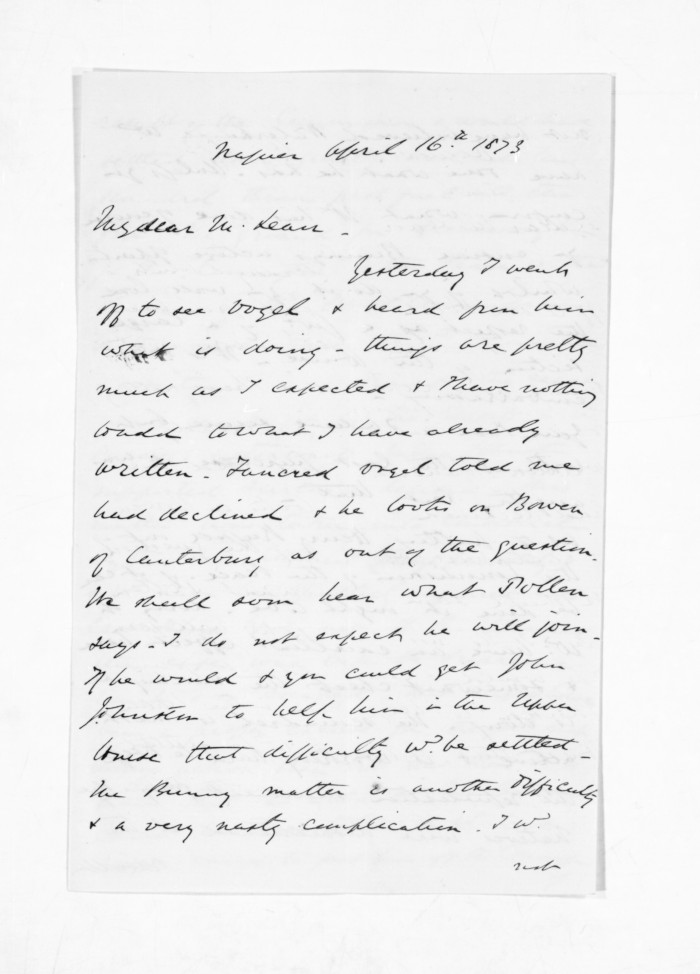 Napier April 16.th 1873
My dear McLean -
Yesterday I went
off to see Vogel & heard from him
what is doing - things are pretty
much as I expected & I have nothing
to add to what I have already
written - Tancred Vogel told me
had declined & he looks on Bowen
of Canterbury as out of the question.
We shall soon hear what Pollen
says - I do not expect he will join -
If he would & you could get John
Johnston to help him in the Upper
house that difficulty wd. be settled -
The Bunny matter is another difficulty
& a very nasty complication. I wd.
not